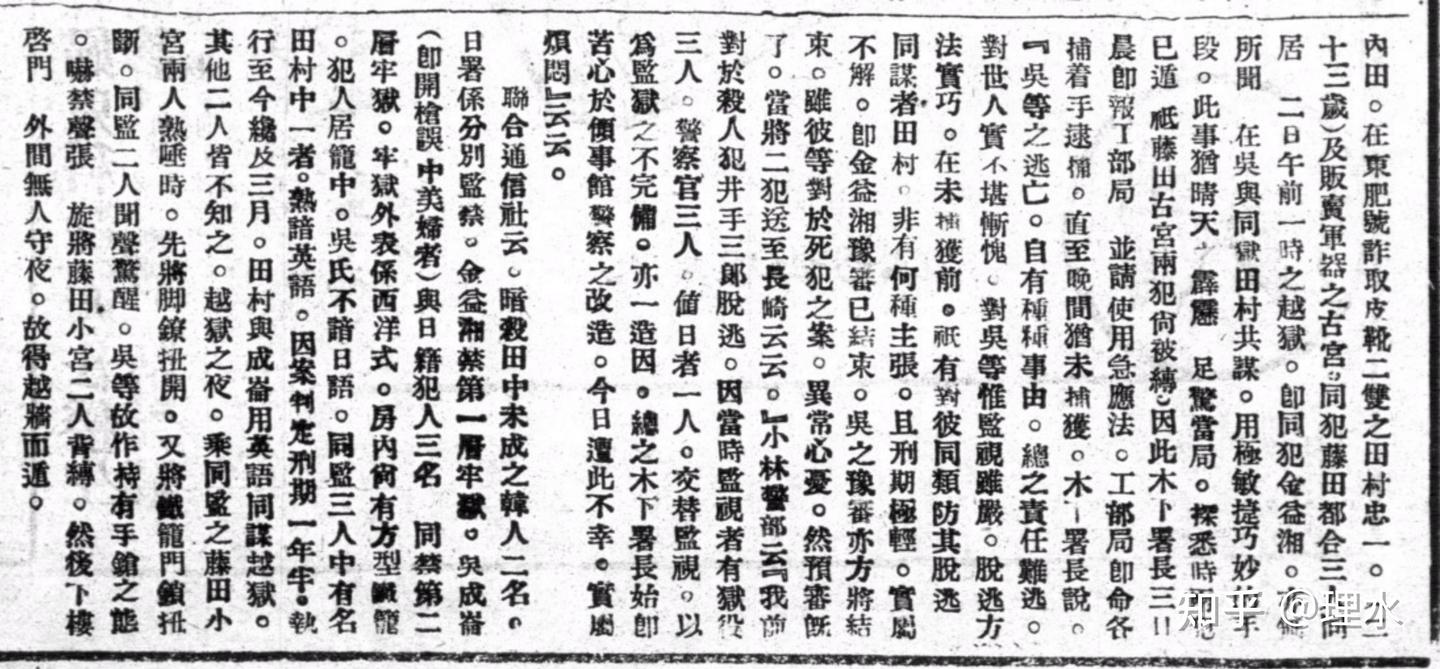 內田。在東肥號詐取皮靴二雙之田村忠一。
十三歲)及販賣軍器之古宮。同犯藤田都合三 同
居。二日午前一時之越獄。卽同犯金益湘。
所聞 在吳與同獄田村共謀。用極敏捷巧妙 手
段。此事猶晴天 霹靂 足驚當局。探悉時
已遁 祇藤田古宮兩犯尙被縛。因此木下署長三日
晨卽報工部局 並請使用急應法。工部局卽命各
捕着手逮捕。直至晚間猶未捕獲。木下署長說。
『吳等之逃亡。自有種種事由。總之責任難逃。
對世人實不堪慚愧。對吳等惟監視雖嚴。脫逃方
法實巧。在未捕獲前。祇有對彼同類防其脫逃
同謀者田村。非有何種主張。且刑期極輕。實屬
不解。卽金益湘豫審已結束。吳之豫審亦方將結
束。雖彼等對於死犯之案。異常心憂。然預審旣
了。當將二犯送至長崎云云。』小林警部云『我前
對於殺人犯井手三郎脫逃。因當時監視者有獄役
三人。警察官三人。値日者一人。交替監視。以
爲監獄之不完備。亦一造因。總之木下署長始卽
苦心於領事館警察之改造。今日遭此不幸。實屬
煩悶』云云。
聯合通信社云。暗殺田中未成之韓人二名。
日署係分別監禁。金益湘禁第一層牢獄。吳成崙
(卽開槍誤中美婦者)與日籍犯人三名 同禁第二
層牢獄。牢獄外表係西洋式。房內尙有方型鐵籠
。犯人居籠中。吳氏不諳日語。同監三人中有名
田村中一者。熟諳英語。因案判定刑期一年半。執
行至今纔及三月。田村與成崙用英語同謀越獄。
其他二人皆不知之。越獄之夜。乘同監之藤田小
宮兩人熟睡時。先將脚鐐扭開。又將鐵籠門鎖扭
斷。同監二人聞聲驚醒。吳等故作持有手鎗之態
。嚇禁聲張 旋將藤田小宮二人背縛。然後下樓
啓門 外間無人守夜。故得越牆而遁。
知乎 @理水